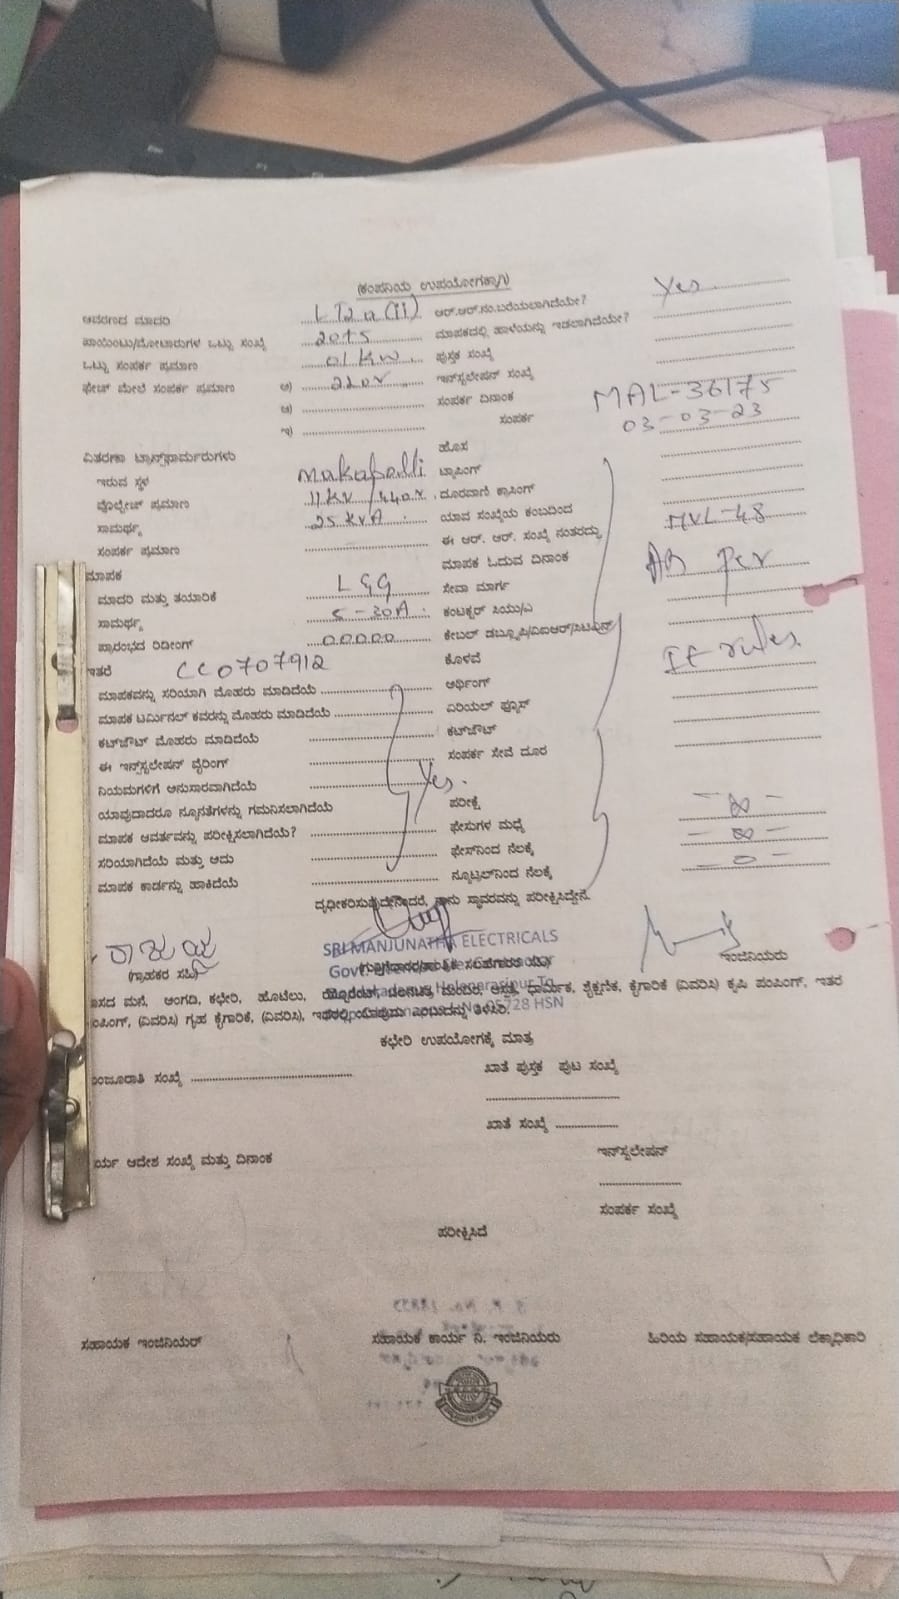 (ಕಂಪನಿಯ ಉಪಯೋಗಕ್ಕಾಗಿ)
ಆವರಣದ ಮಾದರಿ LT2a(ii) ಆರ್.ಆರ್.ನಂ.ಬರೆಯಲಾಗಿದೆಯೇ? Yes
ಪಾಯಿಂಟು/ಮೋಟಾರುಗಳ ಒಟ್ಟು ಸಂಖ್ಯೆ 2015 ಮಾಪಕದಲ್ಲಿ ಹಾಳೆಯನ್ನು ಇಡಲಾಗಿದೆಯೇ?
ಒಟ್ಟು ಸಂಪರ್ಕ ಪ್ರಮಾಣ 01KW ಪುಸ್ತಕ ಸಂಖ್ಯೆ
ಫೇಟ್ ಮೇಲೆ ಸಂಪರ್ಕ ಪ್ರಮಾಣ ಅ) 220V ಇನ್ಸ್ಟಲೇಷನ್ ಸಂಖ್ಯೆ
ಆ) ಸಂಪರ್ಕ ದಿನಾಂಕ MAL-36175
ಇ) ಸಂಪರ್ಕ 03-03-23
ವಿತರಣಾ ಟ್ರಾನ್ಸ್‌ಫಾರ್ಮರುಗಳು ಹೊಸ
ಇರುವ ಸ್ಥಳ makaballi ಟ್ಯಾಪಿಂಗ್
ವೊಲ್ಟೇಜ್ ಪ್ರಮಾಣ 11KV/440V ದೂರವಾಣಿ ಕ್ರಾಸಿಂಗ್
ಸಾಮರ್ಥ್ಯ 25KVA ಯಾವ ಸಂಖ್ಯೆಯ ಕಂಬದಿಂದ MVL-48
ಸಂಪರ್ಕ ಪ್ರಮಾಣ ಈ ಆರ್. ಆರ್. ಸಂಖ್ಯೆ ನಂತರದ್ದು
ಮಾಪಕ ಮಾಪಕ ಓದುವ ದಿನಾಂಕ AB per
ಮಾದರಿ ಮತ್ತು ತಯಾರಿಕೆ L&G ಸೇವಾ ಮಾರ್ಗ
ಸಾಮರ್ಥ್ಯ 5-30A ಕಂಟಕ್ಟರ್ ಸಿಯು/ಎ
ಪ್ರಾರಂಭದ ರಿಡೀಂಗ್ 00000 ಕೇಬಲ್ ಡಬ್ಲ್ಯೂಪಿ/ವಿಐಆರ್/ಸಿಟಿಎಸ್
ಇತರೆ CC0707912 ಕೊಳವೆ IE rules
ಮಾಪಕವನ್ನು ಸರಿಯಾಗಿ ಮೊಹರು ಮಾಡಿದೆಯೆ ಅರ್ಥಿಂಗ್
ಮಾಪಕ ಟರ್ಮಿನಲ್ ಕವರನ್ನು ಮೊಹರು ಮಾಡಿದೆಯೆ ಏರಿಯಲ್ ಫ್ಯೂಸ್
ಕಟ್‌ಔಟ್ ಮೊಹರು ಮಾಡಿದೆಯೆ ಕಟ್‌ಔಟ್
ಈ ಇನ್ಸ್ಟಲೇಷನ್ ವೈರಿಂಗ್ ಸಂಪರ್ಕ ಸೇವೆ ದೂರ
ನಿಯಮಗಳಿಗೆ ಅನುಸಾರವಾಗಿದೆಯೆ Yes.
ಯಾವುದಾದರೂ ನ್ಯೂನತೆಗಳನ್ನು ಗಮನಿಸಲಾಗಿದೆಯೆ ಪರೀಕ್ಷೆ
ಮಾಪಕ ಆವರ್ತವನ್ನು ಪರೀಕ್ಷಿಸಲಾಗಿದೆಯೆ? ಫೇಸುಗಳ ಮಧ್ಯೆ - ∞ -
ಸರಿಯಾಗಿದೆಯೆ ಮತ್ತು ಅದು ಫೇಸ್‌ನಿಂದ ನೆಲಕ್ಕೆ - ∞ -
ಮಾಪಕ ಕಾರ್ಡನ್ನು ಹಾಕಿದೆಯೆ ನ್ಯೂಟ್ರಲ್‌ನಿಂದ ನೆಲಕ್ಕೆ - 0 -
ದೃಢೀಕರಿಸುವುದೇನೆಂದರೆ, ನಾನು ಸ್ಥಾವರವನ್ನು ಪರೀಕ್ಷಿಸಿದ್ದೇನೆ.
SRI MANJUNATHA ELECTRICALS
(ಗ್ರಾಹಕರ ಸಹಿ) ಇಂಜಿನಿಯರು
ವಾಸದ ಮನೆ, ಅಂಗಡಿ, ಕಛೇರಿ, ಹೊಟೆಲು, ಧಾರ್ಮಿಕ, ಶೈಕ್ಷಣಿಕ, ಕೈಗಾರಿಕೆ (ವಿವರಿಸಿ) ಕೃಷಿ ಪಂಪಿಂಗ್, ಇತರ
ಪಂಪಿಂಗ್, (ವಿವರಿಸಿ) ಗೃಹ ಕೈಗಾರಿಕೆ, (ವಿವರಿಸಿ), ತಿಳಿಸಿರಿ.
ಕಛೇರಿ ಉಪಯೋಗಕ್ಕೆ ಮಾತ್ರ
ಮಂಜೂರಾತಿ ಸಂಖ್ಯೆ ಖಾತೆ ಪುಸ್ತಕ ಪುಟ ಸಂಖ್ಯೆ
ಖಾತೆ ಸಂಖ್ಯೆ
ಕಾರ್ಯ ಆದೇಶ ಸಂಖ್ಯೆ ಮತ್ತು ದಿನಾಂಕ ಇನ್ಸ್ಟಲೇಷನ್
ಸಂಪರ್ಕ ಸಂಖ್ಯೆ
ಪರೀಕ್ಷಿಸಿದೆ
ಸಹಾಯಕ ಇಂಜಿನಿಯರ್ ಸಹಾಯಕ ಕಾರ್ಯ ನಿ. ಇಂಜಿನಿಯರು ಹಿರಿಯ ಸಹಾಯಕ/ಸಹಾಯಕ ಲೆಕ್ಕಾಧಿಕಾರಿ